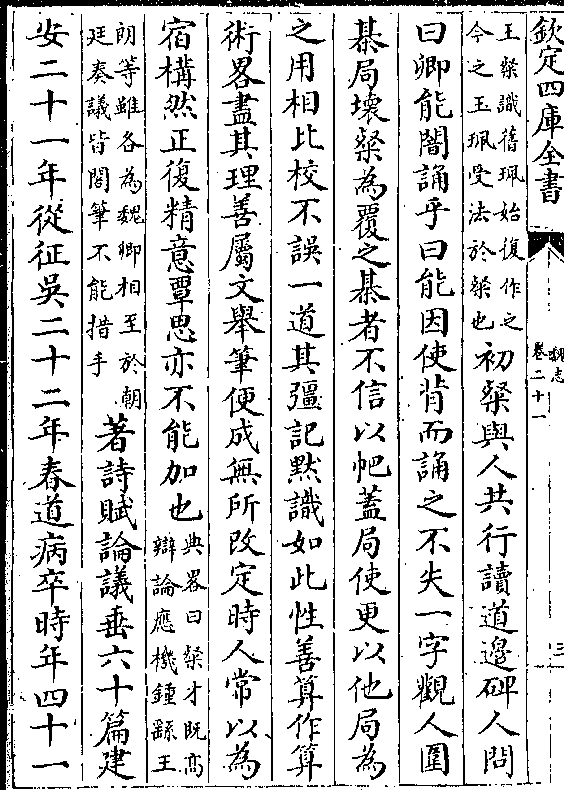 欽定四庫全書
魏志
卷二十一
三
王粲識舊珮始復作之
今之玉珮受法於粲也
初粲與人共行讀道邊碑人問
曰卿能闇誦乎曰能因使背而誦之不失一字觀人圍
棊局壞粲為覆之棊者不信以帊蓋局使更以他局為
之用相比校不誤一道其彊記默識如此性善算作算
術畧盡其理善屬文舉筆便成無所改定時人常以為
宿構然正復精意覃思亦不能加也
典畧曰粲才既高
辯論應機鍾繇王
朗等雖各為魏卿相至於朝
廷奏議皆閣筆不能措手
著詩賦論議垂六十篇建
安二十一年從征吳二十二年春道病卒時年四十一